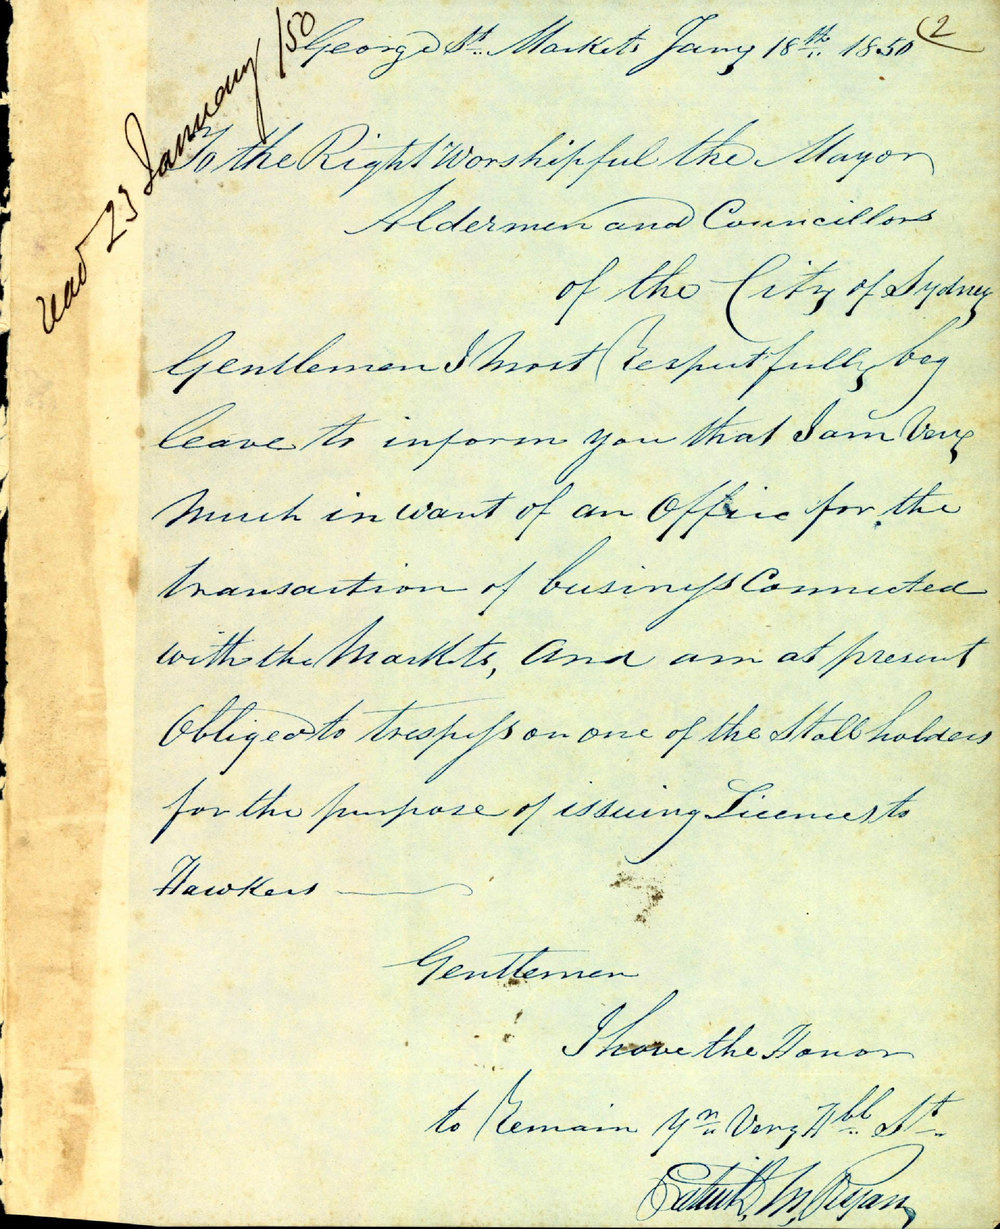 2
George St. Markets Jany 18th. 1850
read 23 January /50
To the Right Worshipful the Mayor
Aldermen and Councillors
of the City of Sydney
Gentlemen I Most Respectfully beg
leave to inform you that I am Very
Much in want of an Office for the
transaction of business Connected
with the Markets, And am at present
Obliged to trespass on one of the Stall holders
for the purpose of issuing Licences to
Hawkers
Gentlemen
I have the Honor
to Remain Yr. Very Hbl. St.
Patrick Ryan